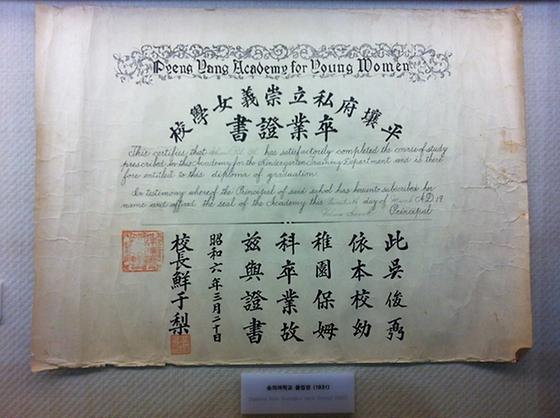 Pyeng Yang Academy for Young Women
平壤府私立崇義女學校
卒業證書
This certifies that has satisfactorily completed the course of study
prescribed in this Academy for the Kindergarten Training Department and is there
fore entitled to this diploma of graduation.
In testimony whereof the Principal of said school has hereunto subscribed her
name and affixed the seal of the Academy this day of A.D. 19
Principal
此吳俊
依本校幼
稚園保姆
科卒業故
茲與證書
昭和六年三月二十日
校長鮮于梨
숭의여학교 졸업장 (1931)